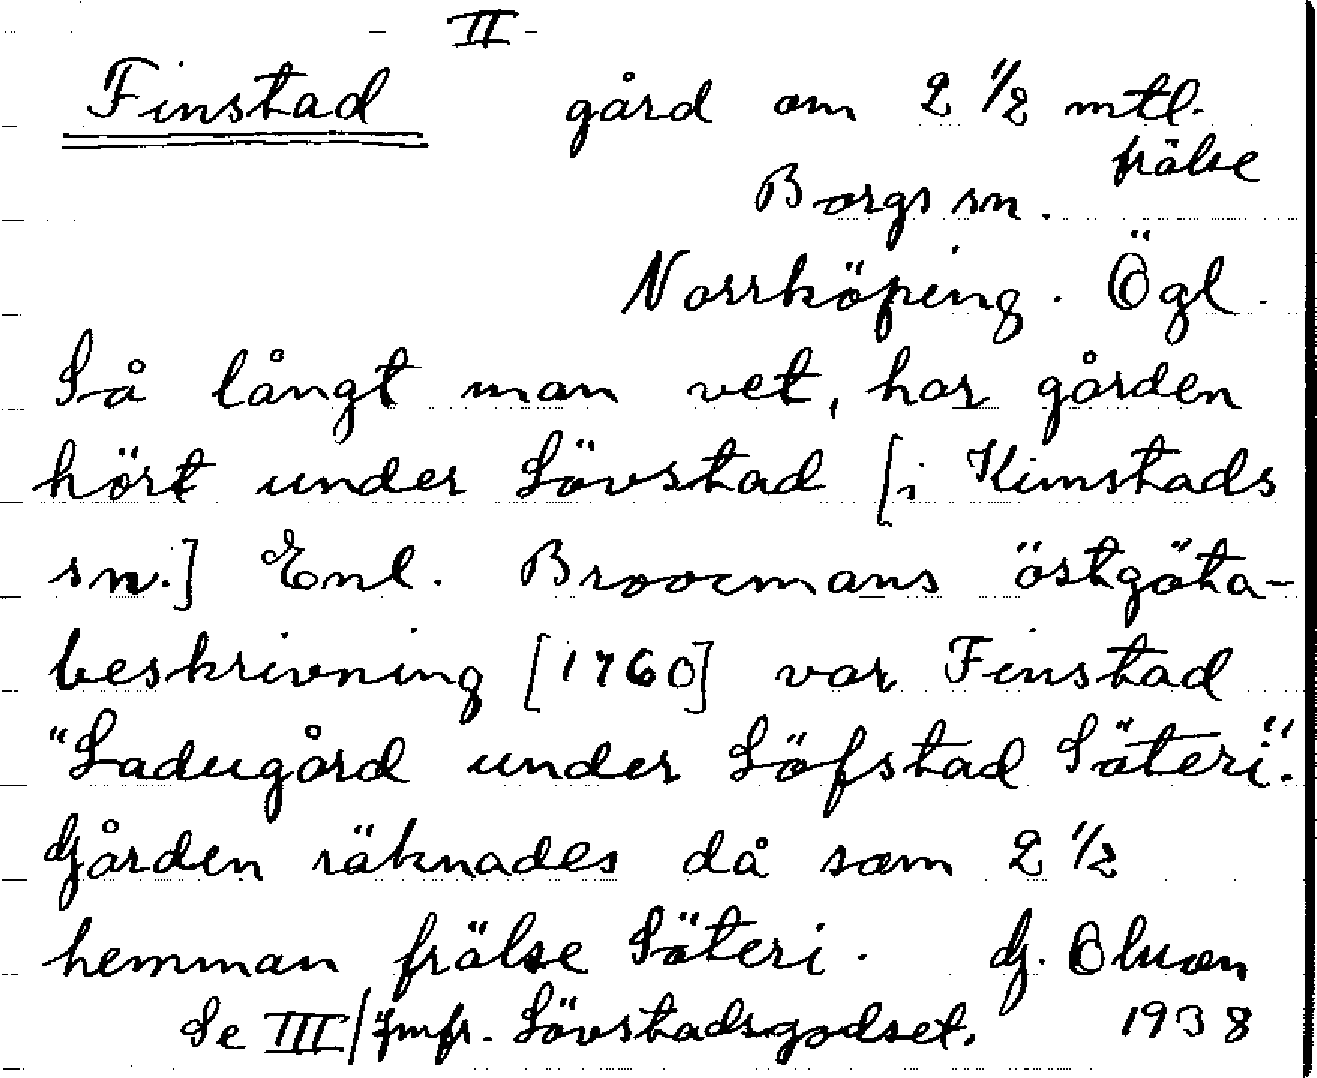 - II -
Finstad gård om 2 1/2 mtl.
frälse
Borgs sn.
Norrköping. Ögl.
Så långt man vet, har gården
hört under Lövstad [i Kimstads
sn.] Enl. Broocmans östgöta-
beskrivning [1760] var Finstad
"Ladugård under Löfstad Säteri".
Gården räknades då som 2 1/2
hemman frälse Säteri. G.
Se III/Jmfr. Lövstadsgodset. 1938